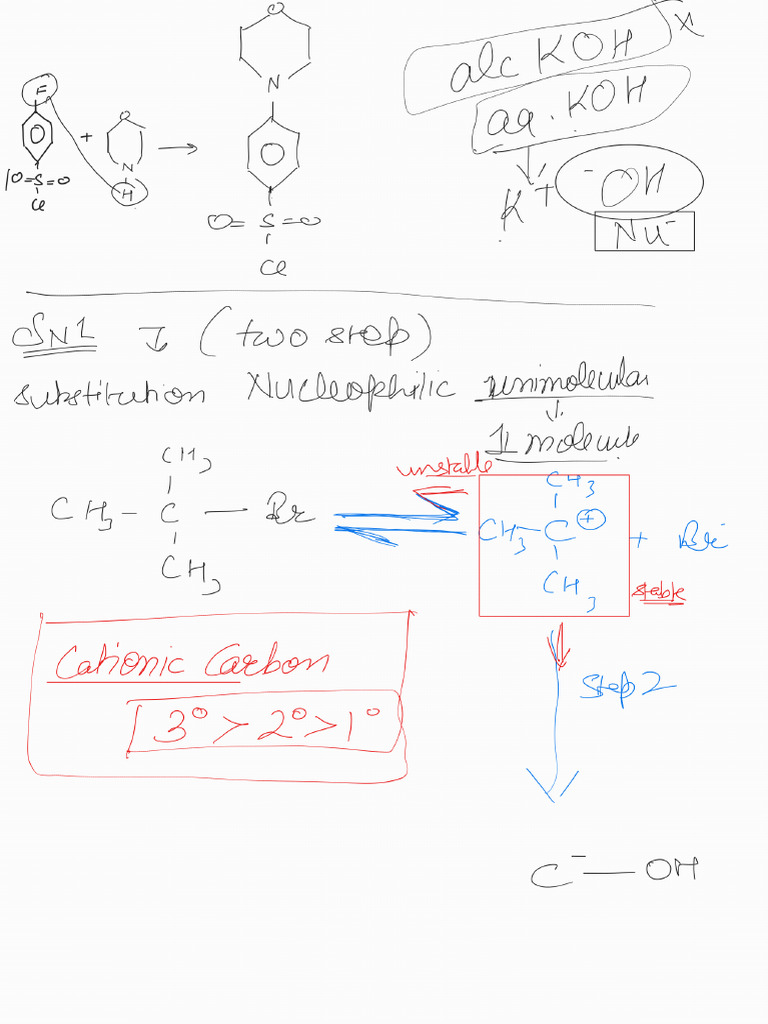 O
N
O=S=O
Cl
F
+
O
N
H
O=S=O
Cl
alc KOH x
aq. KOH
K+ -OH
Nu-
SN1 (two step)
Substitution Nucleophilic unimolecular
1 molecule
unstable
CH3
CH3 - C - Br
CH3
CH3
CH3 - C + + Br-
CH3
stable
Cationic Carbon
3° > 2° > 1°
Step 2
C- — OH